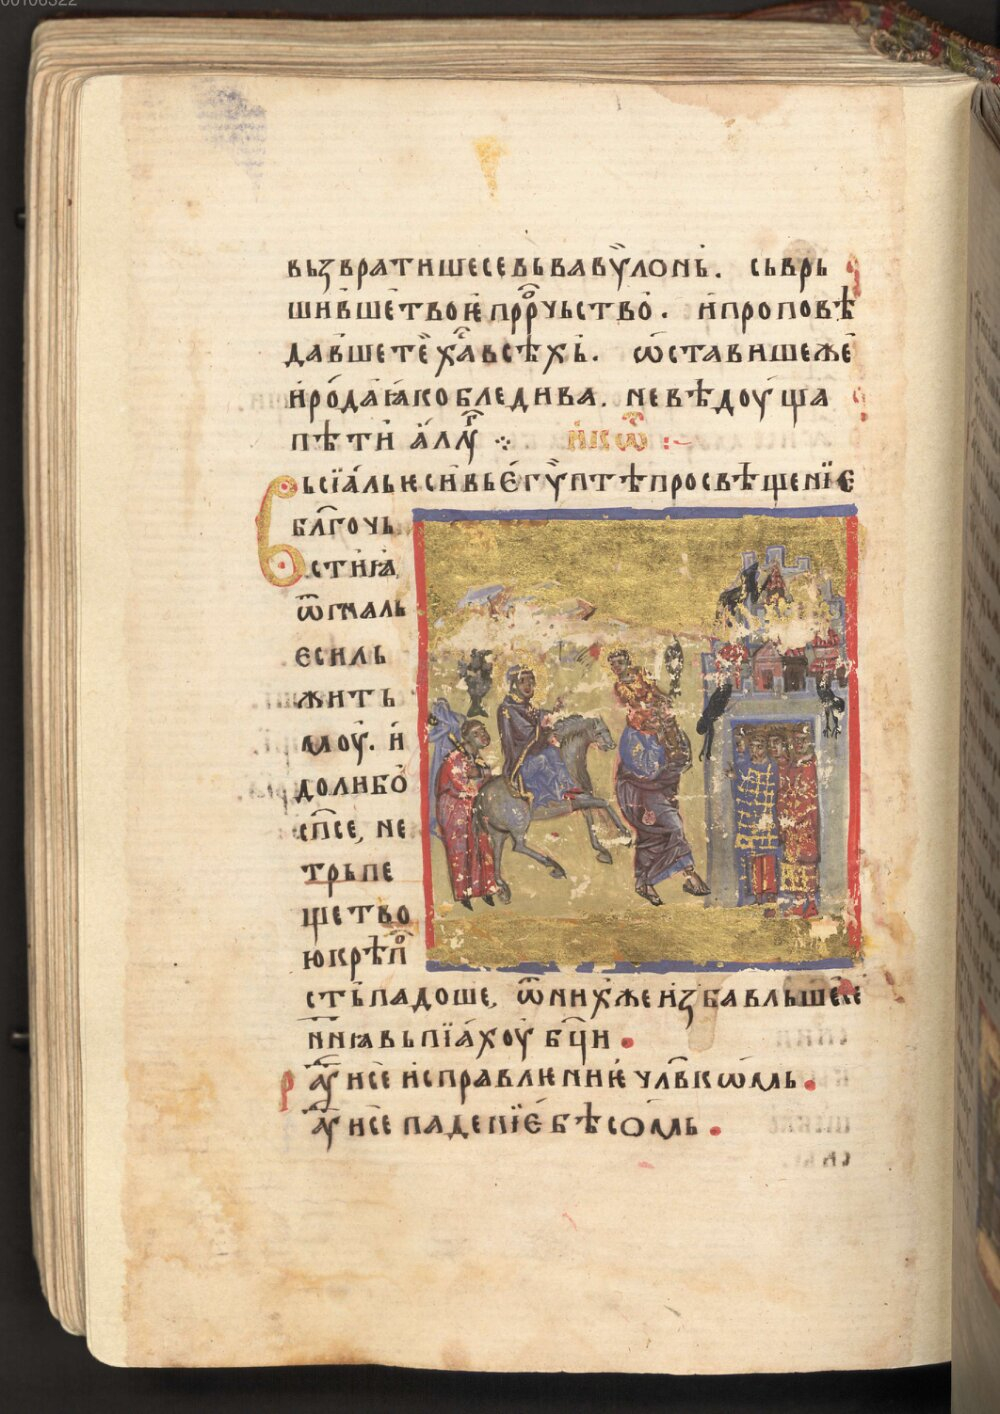 00106322
вьзвратишесевьвавѷлонь. сьврь
шив̾шетвоѥпррⷪ҇чьство. ипроповѣ
дав̾шетех҃авсѣхь. ѡставишеже
иродаꙗкобледива. неведоуща
пѣти алл҃ꙋ ⁘ икѡⷭ҇ :~
Вьсїальксивьегѵптѣпросвѣщенїе
бл҃гочь
стиꙗ
ѿгналь
есиль
жить
моу. и
долибо
сп҃се, не
трьпе
щетво
юкрѣпⷪ҇
стьпадоше, ѿнихжеизбавльшеѥсе
ниꙗвьпїахоу бц҃и.
раⷣуисе исправлѥниѥ чл҃вкѡмь.
раⷣуисе паденїебѣсомь.